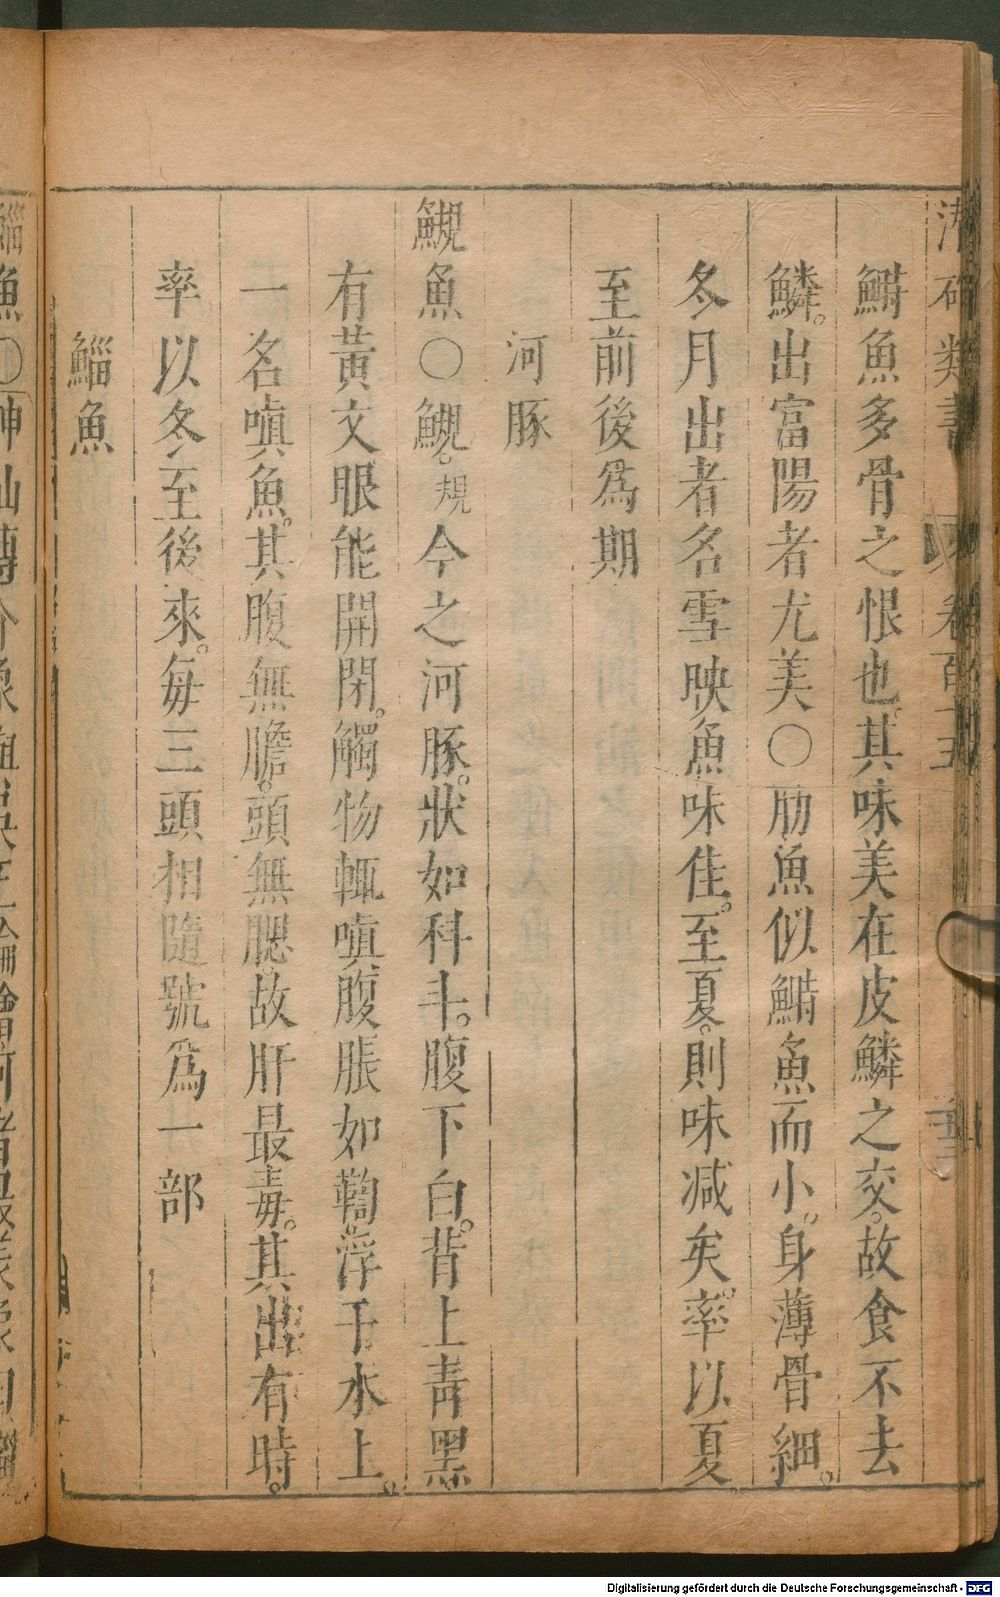 潛確類書 卷百十五
鰣魚多骨之恨也。其味美在皮鱗之交。故食不去
鱗。出富陽者尤美〇肋魚似鰣魚而小。身薄骨細。
冬月出者名雪映魚味佳。至夏。則味減矣。率以夏
至前後為期
河豚
䲅魚〇䲅。規今之河豚。狀如科斗。腹下白。背上青黑
有黃文眼能開閉。觸物輒嗔腹脹如鞽。浮于水上。
一名嗔魚。其腹無膽。頭無腮。故肝最毒。其出有時。
率以冬至後來。每三頭相隨號為一部
鯔魚
鯔魚〇神仙傳介象
Digitalisierung gefördert durch die Deutsche Forschungsgemeinschaft - DFG